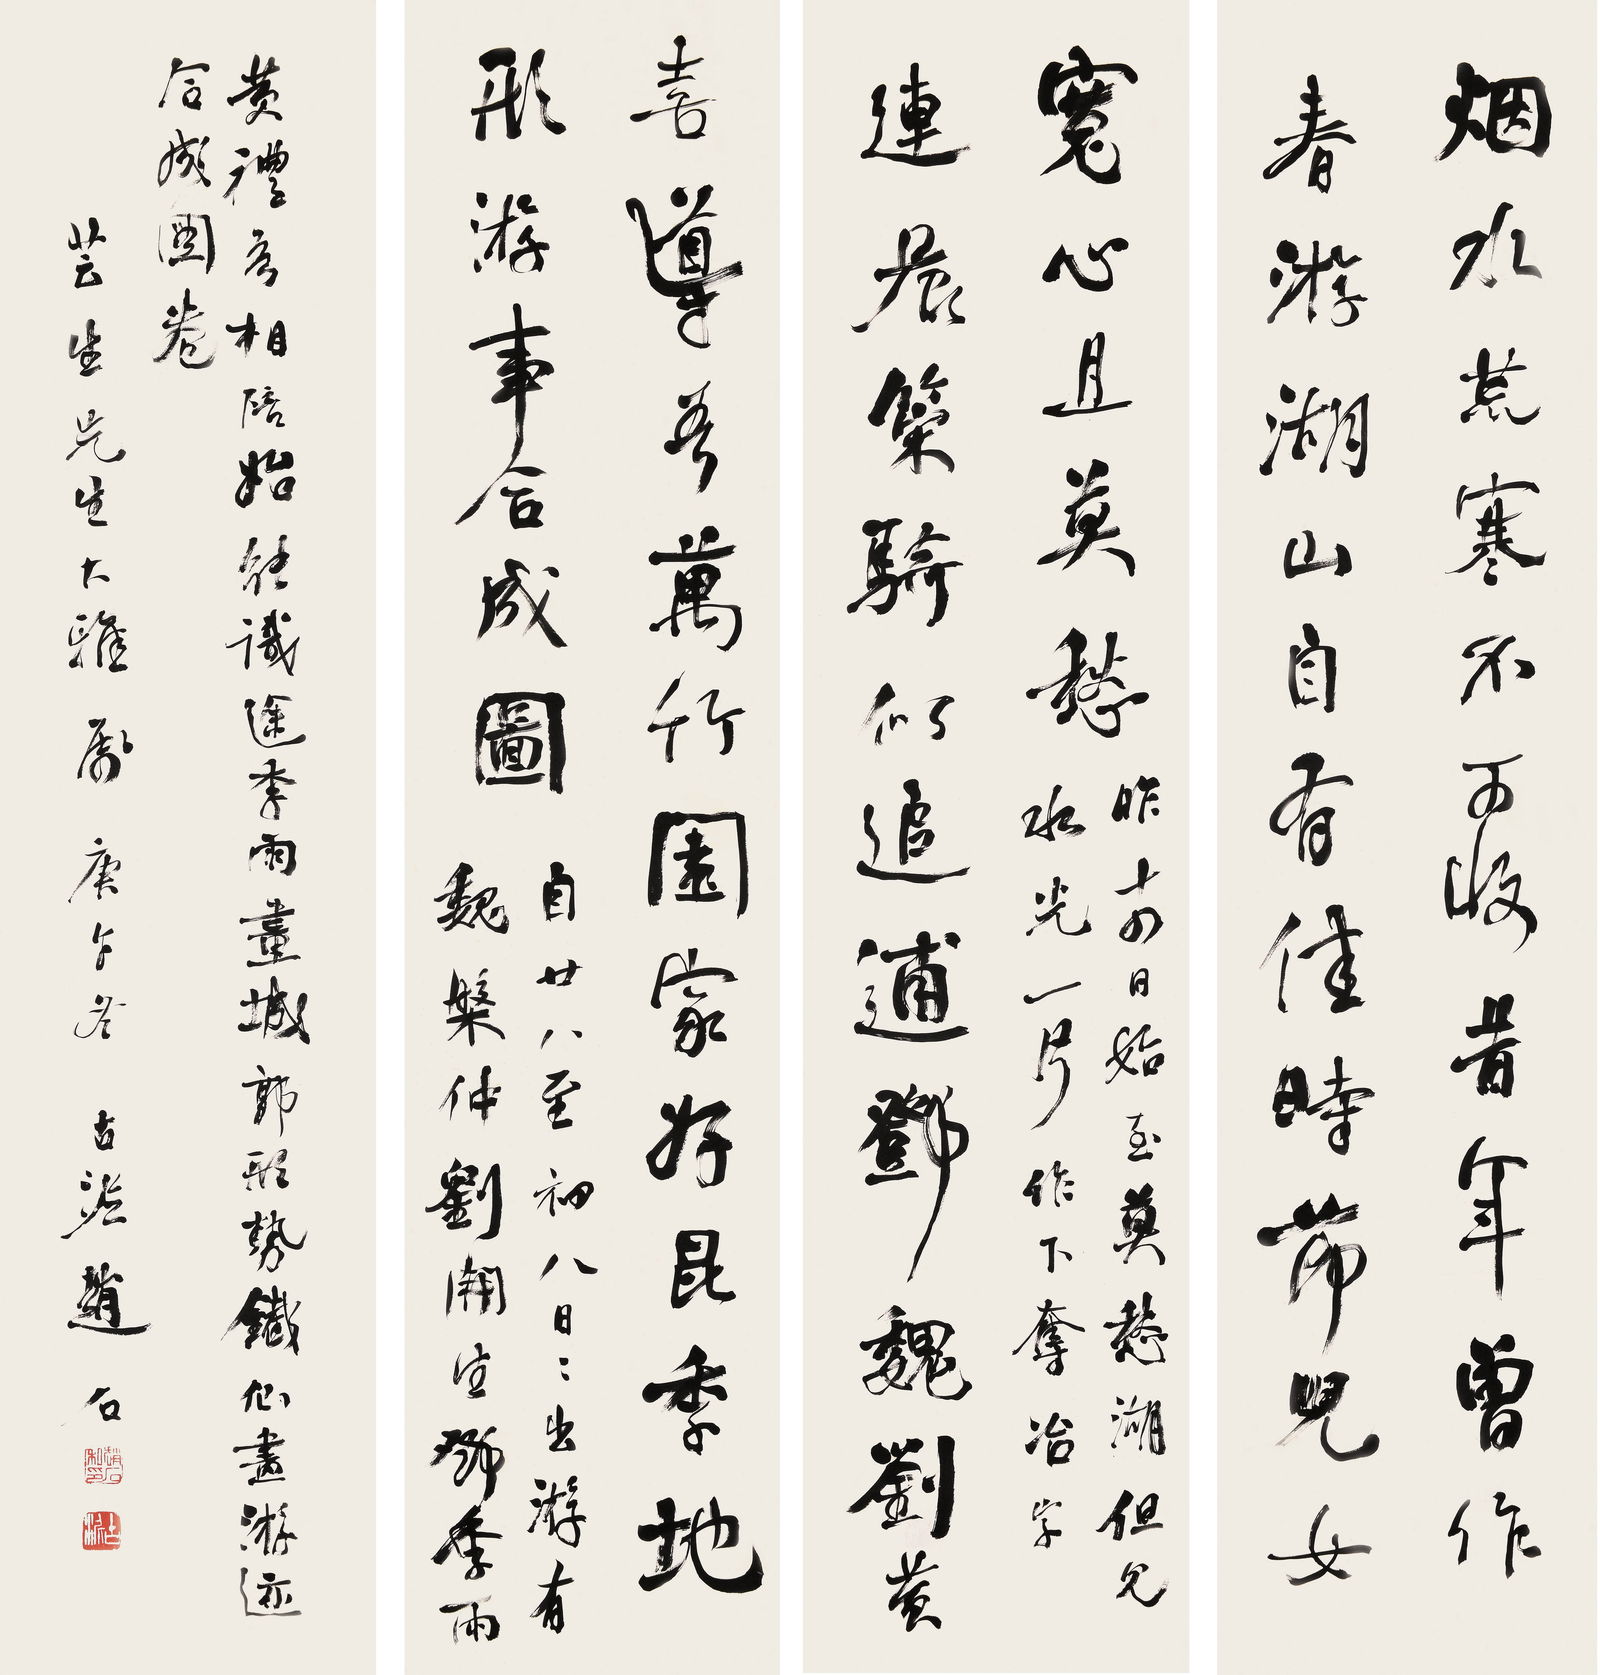 烟水荒寒不可收昔年曾作
春游湖山自有佳時節兒女
寬心且莫愁
昨十四日始至莫愁湖但見
水光一片作下奪冶字
連晨策騎似追逋鄧魏劉黄
喜導吾萬竹園家好昆季地
形游事合成圖
自廿八至初八日二出游有
魏槃仲劉開生鄧季雨
黄禮吾相陪始能識途季雨畫城郭形勢鐵仙畫游迹
合成圖卷
芸生先生大雅屬 庚午冬 古泥趙石